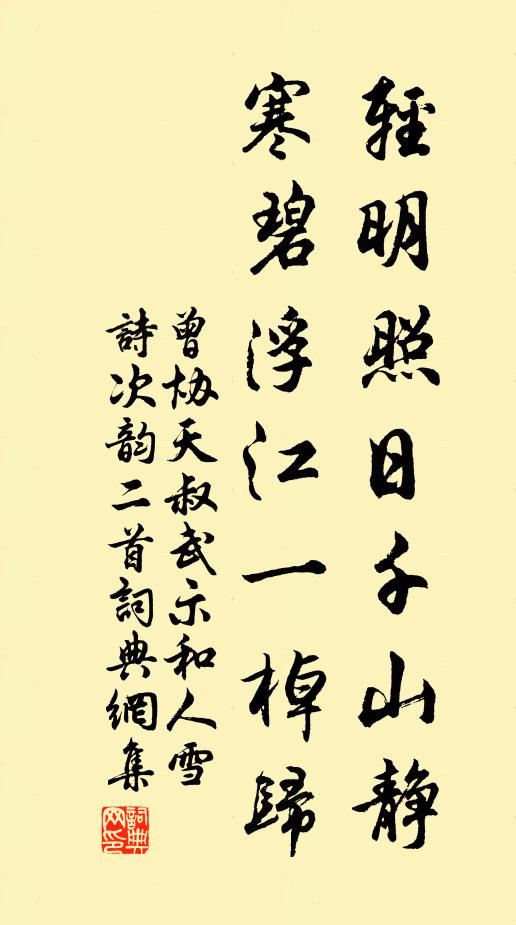 輕明照日千山静
寒碧浮江一棹歸
曾協天叔武示和人雪
詩次韵二首詞典網集
詞典
网印